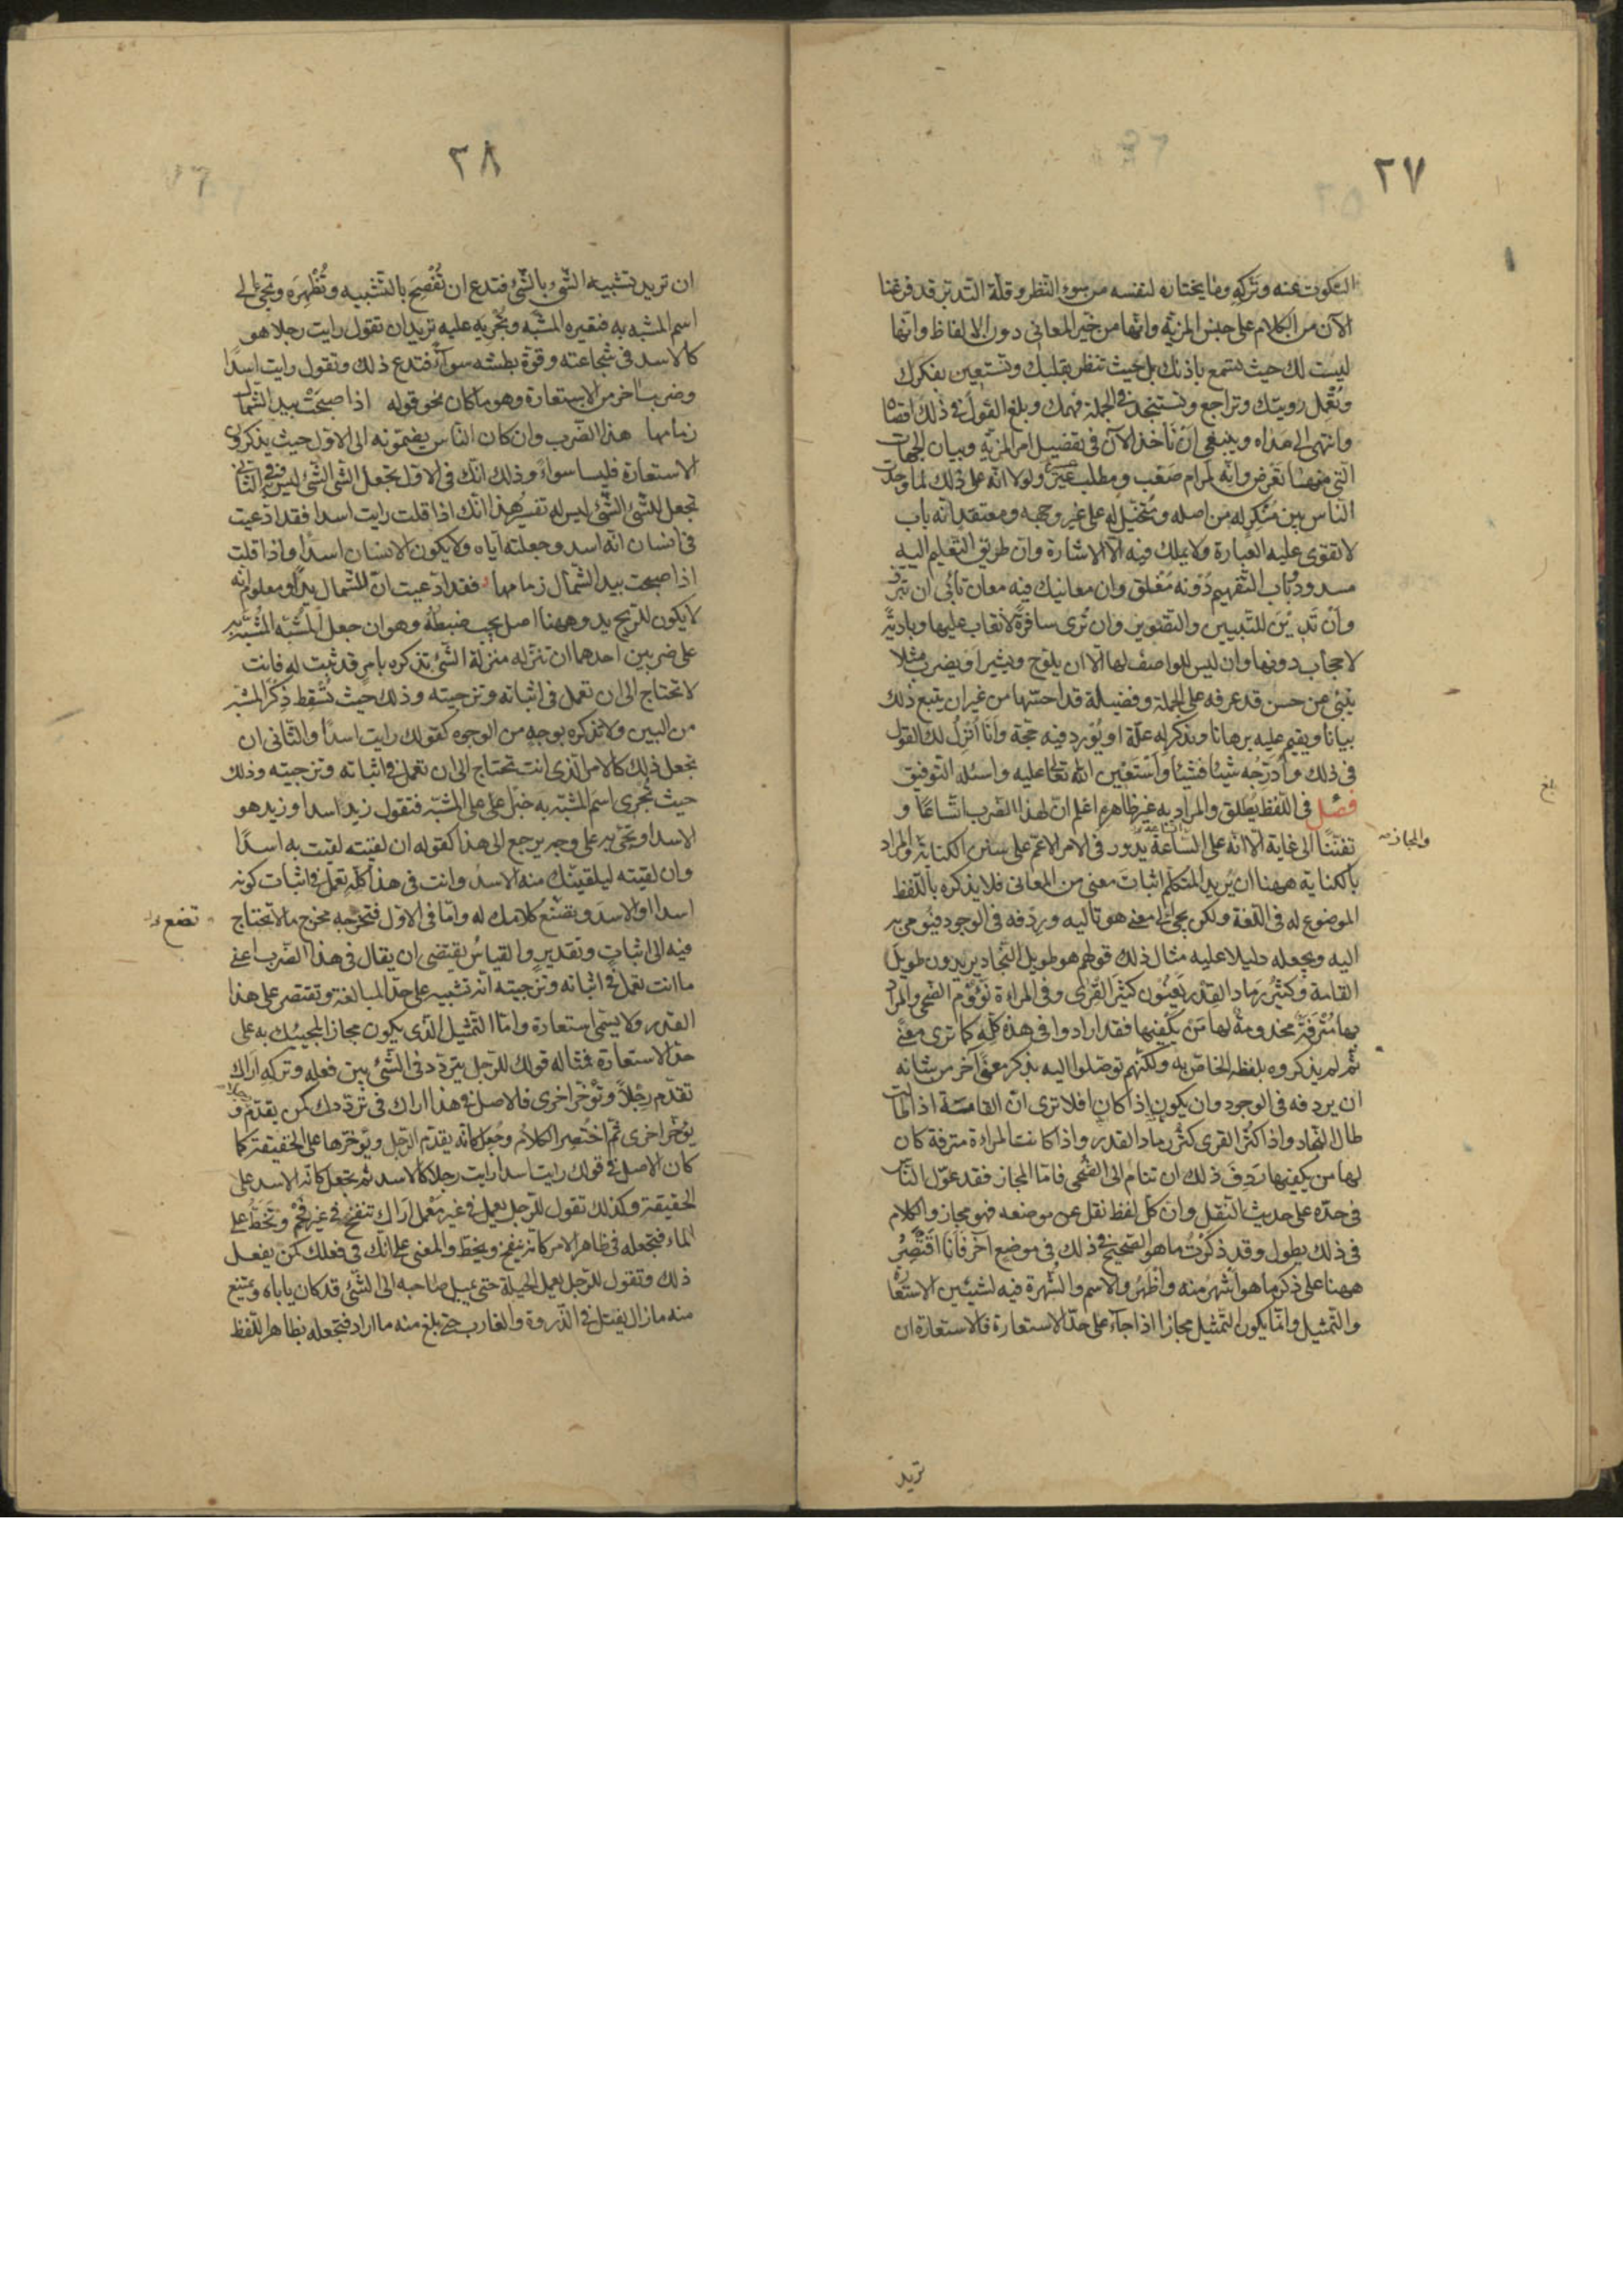 ٢٧
السكوت عنه وتركه وما يختاره لنفسه من سوء النظر وقلة التدبر قد فرغنا
الآن من الكلام على جنس المزية وانها من حيز المعانى دون الالفاظ وانها
ليست لك حيث تستمع باذنك بل حيث تنظر بقلبك وتستعين بفكرك
وتُعْمِل رويتك وتراجع وتستنجد فى الجملة فهمك وبلغ القول فى ذلك اقصاه
وانتهى الى مداه وينبغى ان نأخذ الآن فى تفصيل امر المزية وبيان الجهات
التى منها تعرض وانه لمرام صَعْب ومطلب عسير ولولا انه على ذلك لما وجدت
الناس بين مُنْكِر له من اصله ومُتخَيل له على غير وجهه ومعتقد انه باب
لا تقوى عليه العبارة ولا يملك فيه الا الاشارة وان طريق التعليم اليه
مسدود وباب التفهيم دونه مُغْلق وان معانيك فيه معان تأبى ان تبرز
وأنْ تَدِينَ للتبيين والتصوير وان تُرى سافرة لا نقاب عليها وبادية
لا حجاب دونها وان ليس للواصف لها الا ان يلوح ويشير او يضرب مثلا
ينبئ عن حسن قد عرفه على الجملة وفضيلة قد احسّها من غير ان يتبع ذلك
بيانا ويقيم عليه برهانا ويذكر له علّة او يُورد فيه حجة وأنَا أُنزِلُ لك القول
فى ذلك وأُدرّجُه شيئا فشيئا وأستعين الله تعالى عليه واسئله التوفيق
فصْل فى اللفظ يُطلق والمراد به غير ظاهرِه اعلم انّ لهذا الضرب اتساعًا و
تفنّنًا الى غاية الا انه على اتساعه يدور فى الامر الاعمّ على شيئين الكناية والمراد
والمجاز صح
بالكناية ههنا ان يُريد المتكلّم اثباتَ معنى من المعانى فلا يذكره باللفظ
الموضوع له فى اللغة ولكن يجئ الى معنى هو تاليه ورِدْفه فى الوجود فيُومئ به
اليه ويجعله دليلا عليه مثال ذلك قولهم هو طويل النجاد يريدون طويلَ
القامة وكثيرُ رماد القِدْر يَعنُون كثير القِرَى وفى المراة نَؤُوم الضحى والمراد
بها مُتْرَفة مخدومة لها مَن يكفيها فقد ارادوا فى هذه كلِّه كما ترى معنًى
ثم لم يذكروه بلفظه الخاصّ به ولكنهم توصّلوا اليه بذكر معنًى آخر من شانه
ان يردفه فى الوجود وان يكون اذا كان افلا ترى انّ القامة اذا طالت
طال النجاد واذا كثُر القرى كثُر رماد القدر واذا كانت المراة مترفة كان
لها من يكفيها رَدِفَ ذلك ان تنام الى الضُّحى فامّا المجاز فقد عوّل الناس
فى حدّه على حديث النقل وان كلّ لفظ نقل عن موضعه فهو مجاز والكلام
فى ذلك يطول وقد ذكرتُ ما هو الصحيح فى ذلك فى موضع آخر فأنَا اَقتَصِرُ
ههنا على ذكر ما هو أشهرُ منه وأظهَرُ والاسم والشهرة فيه لشيئين الاستعارة
والتمثيل وانّما يكون التمثيل مجازا اذا جآء على حدّ الاستعارة فالاستعارة ان
تريد
بلغ
٢٨
ان تريد تشبيه الشئ بالشئ فتدع ان تُفْصِحَ بالتشبيه وتُظْهِرَه وتجئ الى
اسم المشبه به فتعيره المشبّه وتُجْريَه عليه تريد ان تقول رايت رجلا هو
كالاسد فى شجاعته وقوة بطشه سوآء فتدع ذلك وتقول رايت اسدًا
وضرب آخر من الاستعارة وهو ما كان نحو قوله اذ اصبحَتْ بيد الشمال
زمامها هذا الضرب وان كان الناس يضمّونه الى الاول حيث يذكرون
الاستعارة فليسا سواءً وذلك انّك فى الاول تجعل الشئ الشئ ليس به وفى الثانى
تجعل للشئ الشئ ليس له تفسيرُ هذا انّك اذا قلت رايت اسدا فقد ادّعيت
فى انسان انه اسد وجعلته اياه ولا يكون الانسان اسدًا واذا قلت
اذ اصبحت بيد الشمال زمامها فقد ادّعيت انّ للشمال يدًا ومعلوم انه
لا يكون للريح يد وههنا اصل يجب ضبطُه وهو ان جعل المشبّه المشبّه به
على ضربين احدهما ان تنزله منزلة الشئ تذكره بامرٍ قد ثبت له فانت
لا تحتاج الى ان تعمل فى اثباته وتزجيته وذلك حيث تُسقِط ذِكرَ المشبّه
من البين ولا تذكره بوجه من الوجوه كقولك رايت اسدًا والثانى ان
تجعل ذلك كالامر الذى انت تحتاج الى ان تعمل فى اثباته وتزجيته وذلك
حيث تُجرى اسم المشبّه به خبرا على المشبّه فتقول زيد اسد او زيد هو
الاسد او تجئ به على وجه يرجع الى هذا كقوله ان لقيته لقيت به اسدًا
وان لقيته ليلقينّك منه الاسد وانت فى هذا كلّه تعمل فى اثبات كونه
اسدا او الاسد وتضع كلامك له وامّا فى الاول فتخرجه مخرج ما لا تحتاج
تضع
فيه الى اثبات وتقدير والقياسُ يقتضى ان يقال فى هذا الضرب اعنى
ما انت تعمل فى اثباته وتزجيته انه تشبيه على حدّ المبالغة وتقتصر على هذا
القدر ولا يسمّى استعارة وامّا التمثيل الذى يكون مجازا لمجيئك به على
حدّ الاستعارة فمثاله قولك للرجل يتردّد فى الشئ بين فعله وتركه اراك
تقدّم رِجْلاً وتُؤخّر اخرى فالاصل فى هذا اراك فى تردّدك كمن يقدّم رجلا و
يؤخّر اخرى ثمّ اختُصِر الكلام وجُعل كانّه يقدّم الرجل ويؤخّرها على الحقيقة كما
كان الاصل فى قولك رايت اسدا رايت رجلا كالاسد ثم تجعل كانّه الاسد على
الحقيقة وكذلك تقول للرجل يعمل فى غير مَعْمَل اَراك تنفخُ فى غير فَحْمٍ وتَخطُّ على
الماء فتجعله فى ظاهر الامر كانه ينفخ ويخطّ والمعنى على انك فى فعلك كمن يفعل
ذلك وتقول للرجل يعمل الحيلة حتى يميل صاحبه الى الشئ قد كان ياباه ويمتنع
منه ما زال يفتل فى الذروة والغارب حتى بلغ منه ما اراد فتجعله بظاهر اللفظ